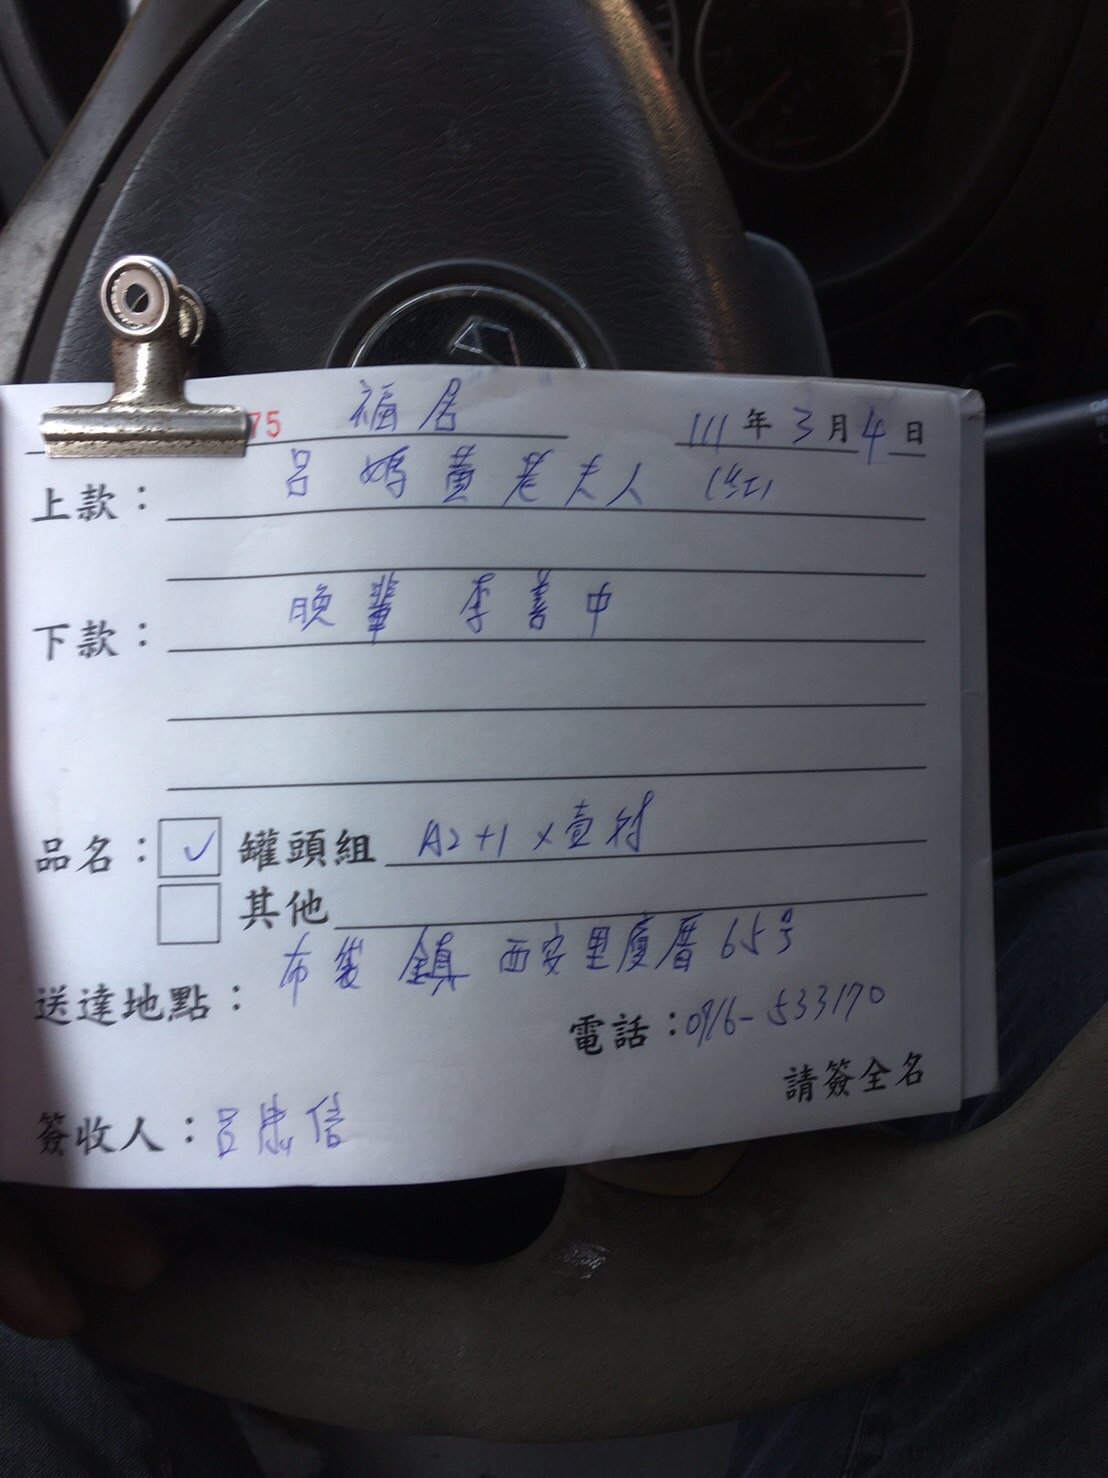 75 福居 111年3月4日
上款：呂媽黃老夫人 (紅)
下款：晚輩 李善中
品名：✓ 罐頭組 A2+1 x壹对
其他
送達地點：布袋鎮西安里廈厝65号
電話：0916-533170
請簽全名
簽收人：呂忠信